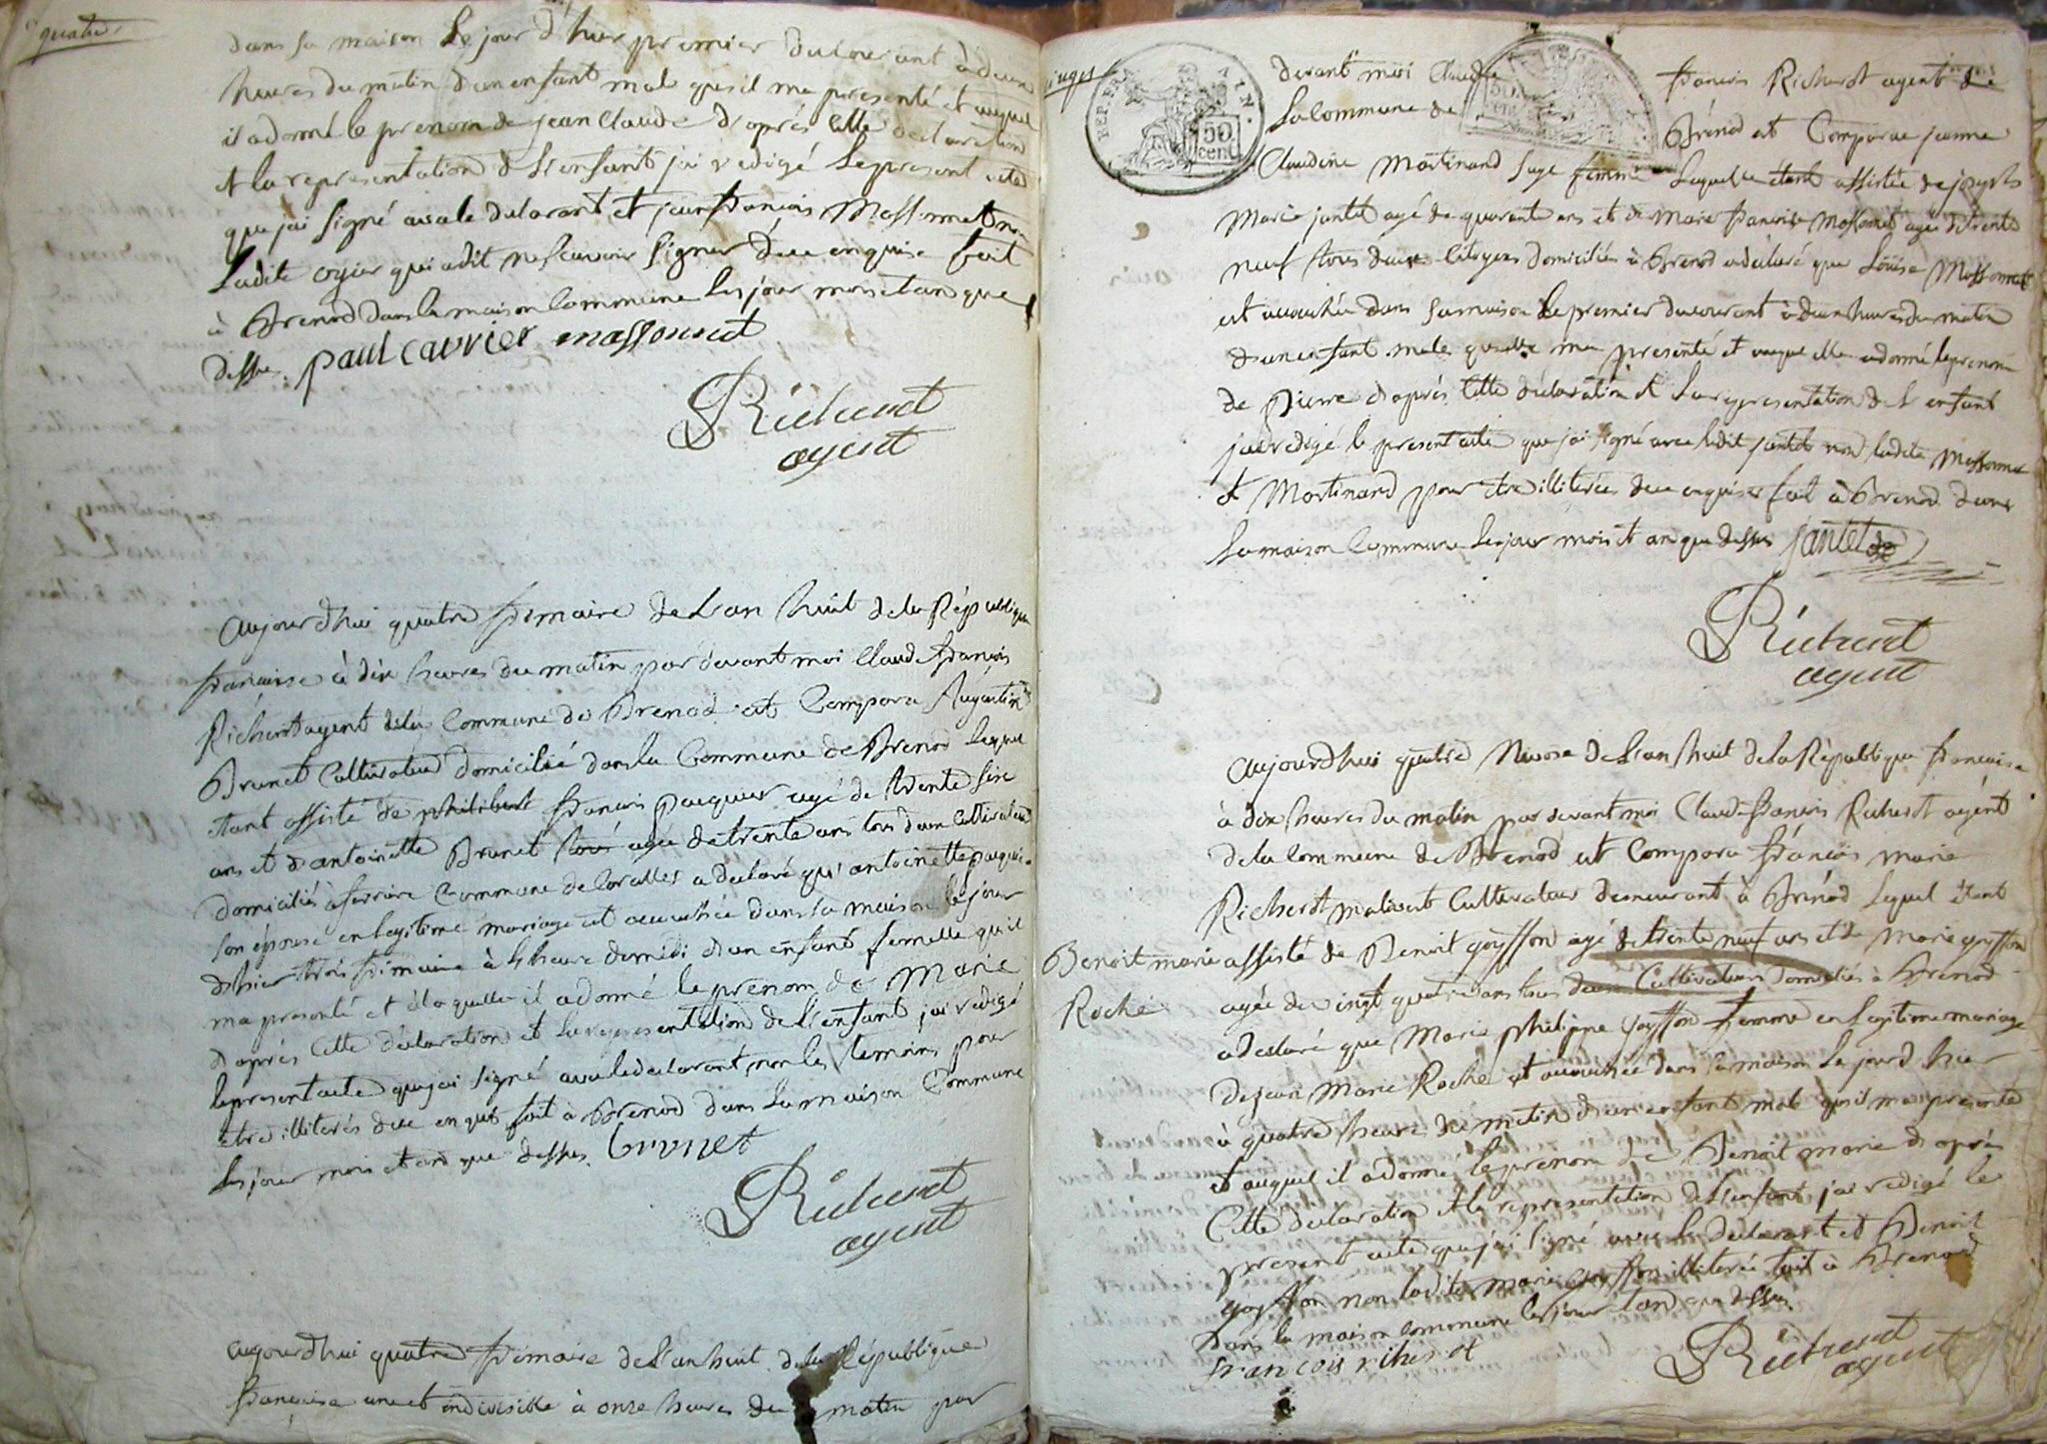 quatre
dans sa maison le jour d'hier premier du courant à deux
heures du matin d'un enfant mal quil ma presenté et auquel
il a donné le prenom de jean Claude d'aprés cette declaration
et la representation de l'enfant jai redigé le present acte
que jai signé avec le declarant et jean francois Massonnet non
ladite qui a dit ne scavoir signer de ce enquise fait
à Brenod dans la maison commune les jour mois et an que
dessus. paul cavrier massonnet
Richerot
agent
aujourd'hui quatre frimaire de l'an huit de la République
francaise à dix heures du matin par devant moi Claude francois
Richerot agent de la Commune de Brenod est Comparu Augustin
Brunet Cultivateur domicilié dans la Commune de Brenod lequel
etant assisté de philibert francois pacquier agé de trente six
ans et d'antoinette Brunet agée de trente ans tous deux cultivateurs
domiciliés à ferriere Commune de Corcelles a declaré qu'antoinette pacquier
son épouse en legitime mariage est accouchée dans sa maison le jour
d'hier trois frimaire à heure de midi d'un enfant femelle qu'il
ma presenté et à laquelle il a donné le prenom de Marie
d'aprés Cette déclaration et la representation de l'enfant jai redigé
le present acte que jai signé avec le declarant non les temoins pour
etre illiterés de ce enquis fait à Brenod dans la maison Commune
les jour mois et and que dessus. brunet
Richerot
agent
aujourdhui quatre frimaire de l'an huit de la République
francaise une et indivisible à onze heures du matin par
REP. FRA. 50 cent
devant moi Claude francois Richerot agent de
la Commune de Brénod est Comparue jeanne
Claudine Martinand sage femme laquelle étant assistée de joseph
Marie jantet agé de quarante ans et de Marie francoise Massonnet agée de trente
neuf tous deux Citoyens domiciliés à Brenod a déclaré que Louise Massonnet
est accouchée dans sa maison le premier du courant à deux heures du matin
d'un enfant male quelle ma presenté et auquel elle a donné le prenom
de Pierre d'aprés Cette déclaration et la representation de l'enfant
jai redigé le present acte que jai signé avec ledit jantet non ladite Massonnet
et Martinand pour etre illiterées de ce enquises fait à Brenod dans
la maison Commune les jour mois et an que dessus jantet
Richerot
agent
aujourdhui quatre Nivose de l'an huit de la République francaise
à dix heures du matin par devant moi Claude francois Richerot agent
de la commune de Brénod est Comparu francois marie
Richerot Cultivateur demeurant à Brénod lequel étant
Benoit marie
Roche
assisté de Benoit goyffon agé de trente neuf ans et de Marie goyffon
agée de vingt quatre ans tous deux Cultivateurs domiciliés à Brenod
a declaré que Marie philippe goyffon femme en legitime mariage
de jean Marie Roche est accouchée dans sa maison le jour d'hier
à quatre heures du matin d'un enfant mal quil ma presenté
et auquel il a donné le prenom de Benoit marie d'aprés
Cette declaration et la representation de l'enfant jai redigé le
present acte que jai signé avec le declarant et Benoit
goyffon non ladite marie goyffon illiterée fait à Brenod
dans la maison commune les jour et an que dessus.
francois richerot
Richerot
agent